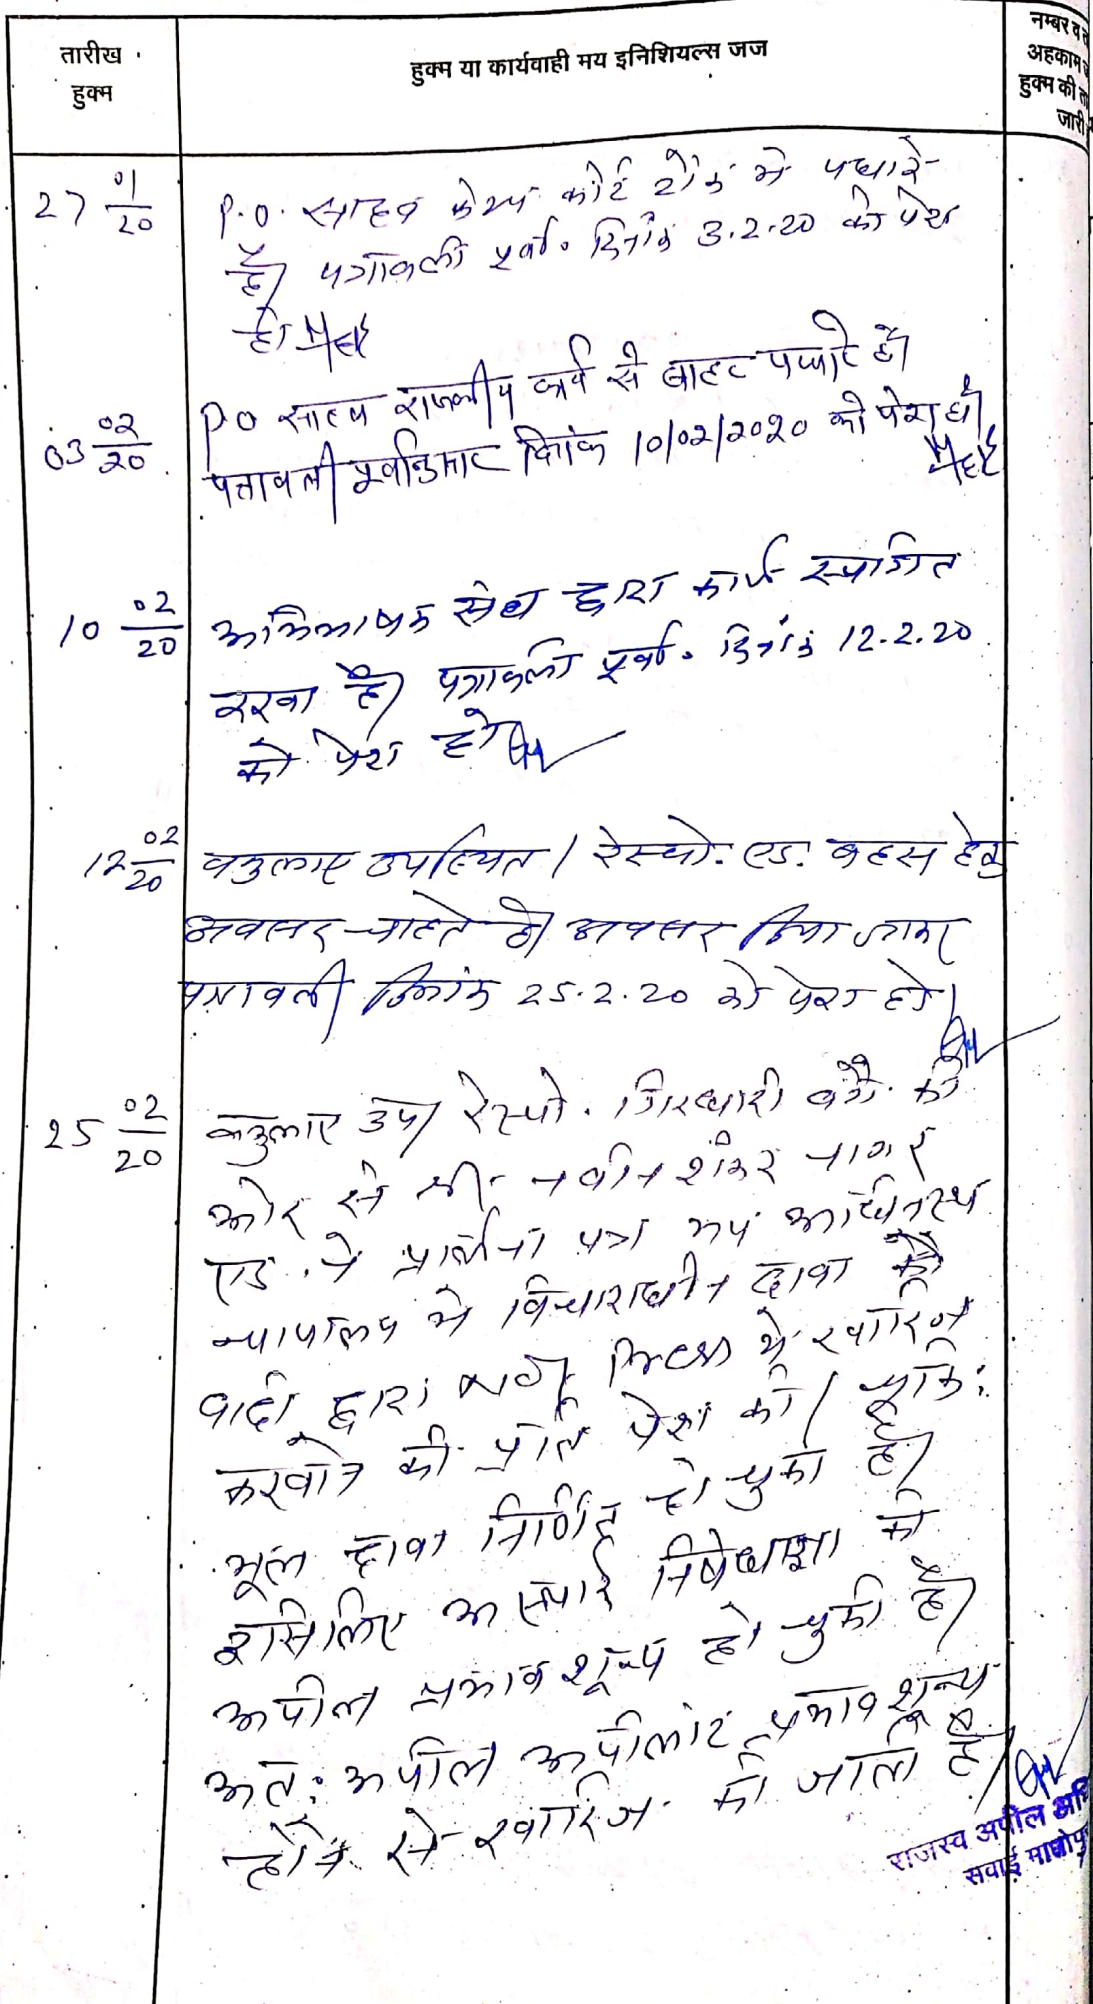 तारीख
हुक्म
हुक्म या कार्यवाही मय इनिशियल्स जज
नम्बर व
अहकाम
हुक्म की
जारी
27 01/20
P.O. साहब केम्प कोर्ट टोंक मे पधारे
है। पत्रावली पूर्वा. दिनांक 3.2.20 को पेश
हो।
03 02/20
P O साहब राजकीय कार्य से बाहर पधारे है।
पत्रावली पूर्वानुसार दिनांक 10/02/2020 को पेश हो।
10 02/20
अभिभाषक संघ द्वारा कार्य स्थगित
रखा है। पत्रावली पूर्वा. दिनांक 12.2.20
को पेश हो
12 02/20
वकुलाए उपस्थित। रेस्पो. एड. बहस हेतु
अवसर चाहते है। अवसर दिया जाकर
पत्रावली दिनांक 25.2.20 को पेश हो।
25 02/20
वकुलाए उप। रेस्पो. गिरधारी वगै. की
ओर से श्री नवीन शंकर नागर
एड. ने प्रार्थना पत्र मय अधिनस्थ
न्यायालय मे विचाराधीन दावा को
वादी द्वारा Not Press मे खारिज
करवाने की प्रति पेश की। चूकि:
मूल दावा निर्णित हो चुका है।
इसिलिए अस्थाई निषेधाज्ञा की
अपील प्रभाव शून्य हो चुकी है।
अत: अपील अपीलांट प्रभाव शून्य
होने से खारिज की जाती है।
राजस्व अपील अधि
सवाई माधोपु